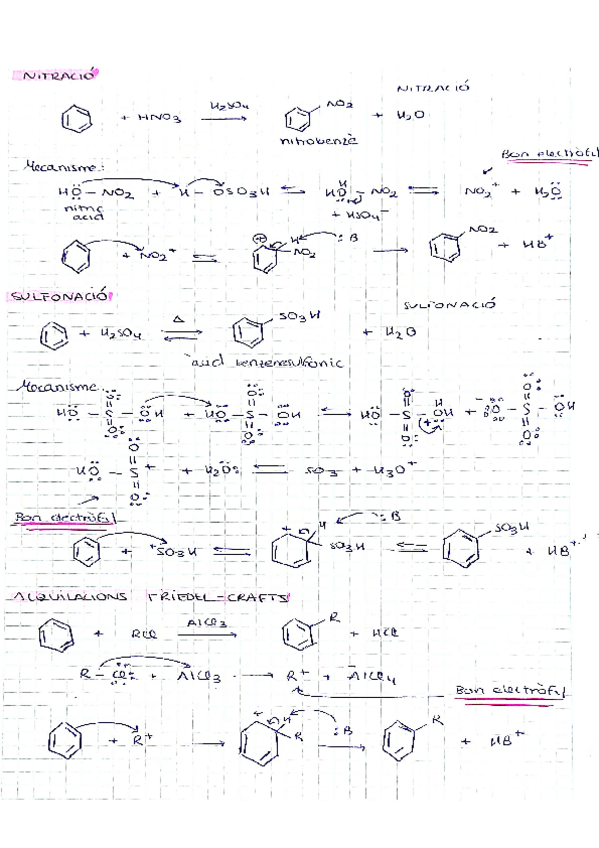 NITRACIÓ
NITRACIÓ
+ HNO3 H2SO4 → NO2 + H2O
nitrobenzè
Bon electròfil
Mecanisme:
HO – NO2 + H – OSO3H ⇌ HO – NO2 ⇌ NO2+ + H2O
H
nitric acid
+ HSO4−
+ NO2+ ⇌ + H NO2 :B → NO2 + HB+
SULFONACIÓ
SULFONACIÓ
+ H2SO4 Δ ⇌ SO3H + H2O
àcid bencenesulfònic
Mecanisme:
O O O H O
HO – S – OH + HO – S – OH ⇌ HO – S – OH + −O – S – OH
O O O + O
O
HO – S + + H2O: ⇌ SO3 + H3O+
O
Bon electròfil
+ +SO3H ⇌ + H SO3H :B ⇌ SO3H + HB+
ALQUILACIONS FRIEDEL-CRAFTS
+ RCl AlCl3 → R + HCl
R – Cl: + AlCl3 → R+ + −AlCl4
Bon electròfil
+ R+ → + H R :B → R + HB+